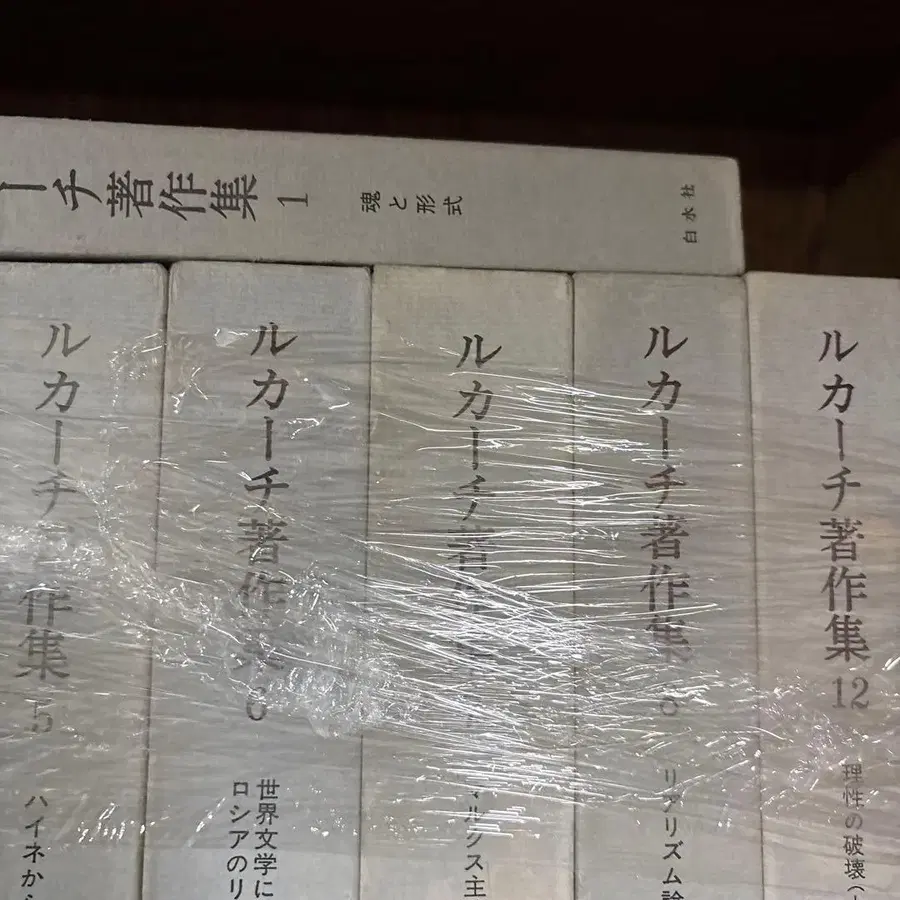 ーチ著作集 1 魂と形式 白水社
ルカーチ 作集 5
ハイネか
ルカーチ著作集 6
世界文学に
ロシアのリ
ルカーチ著
マルクス主
ルカーチ著作集
リアリズム論
ルカーチ著作集 12
理性の破壊(